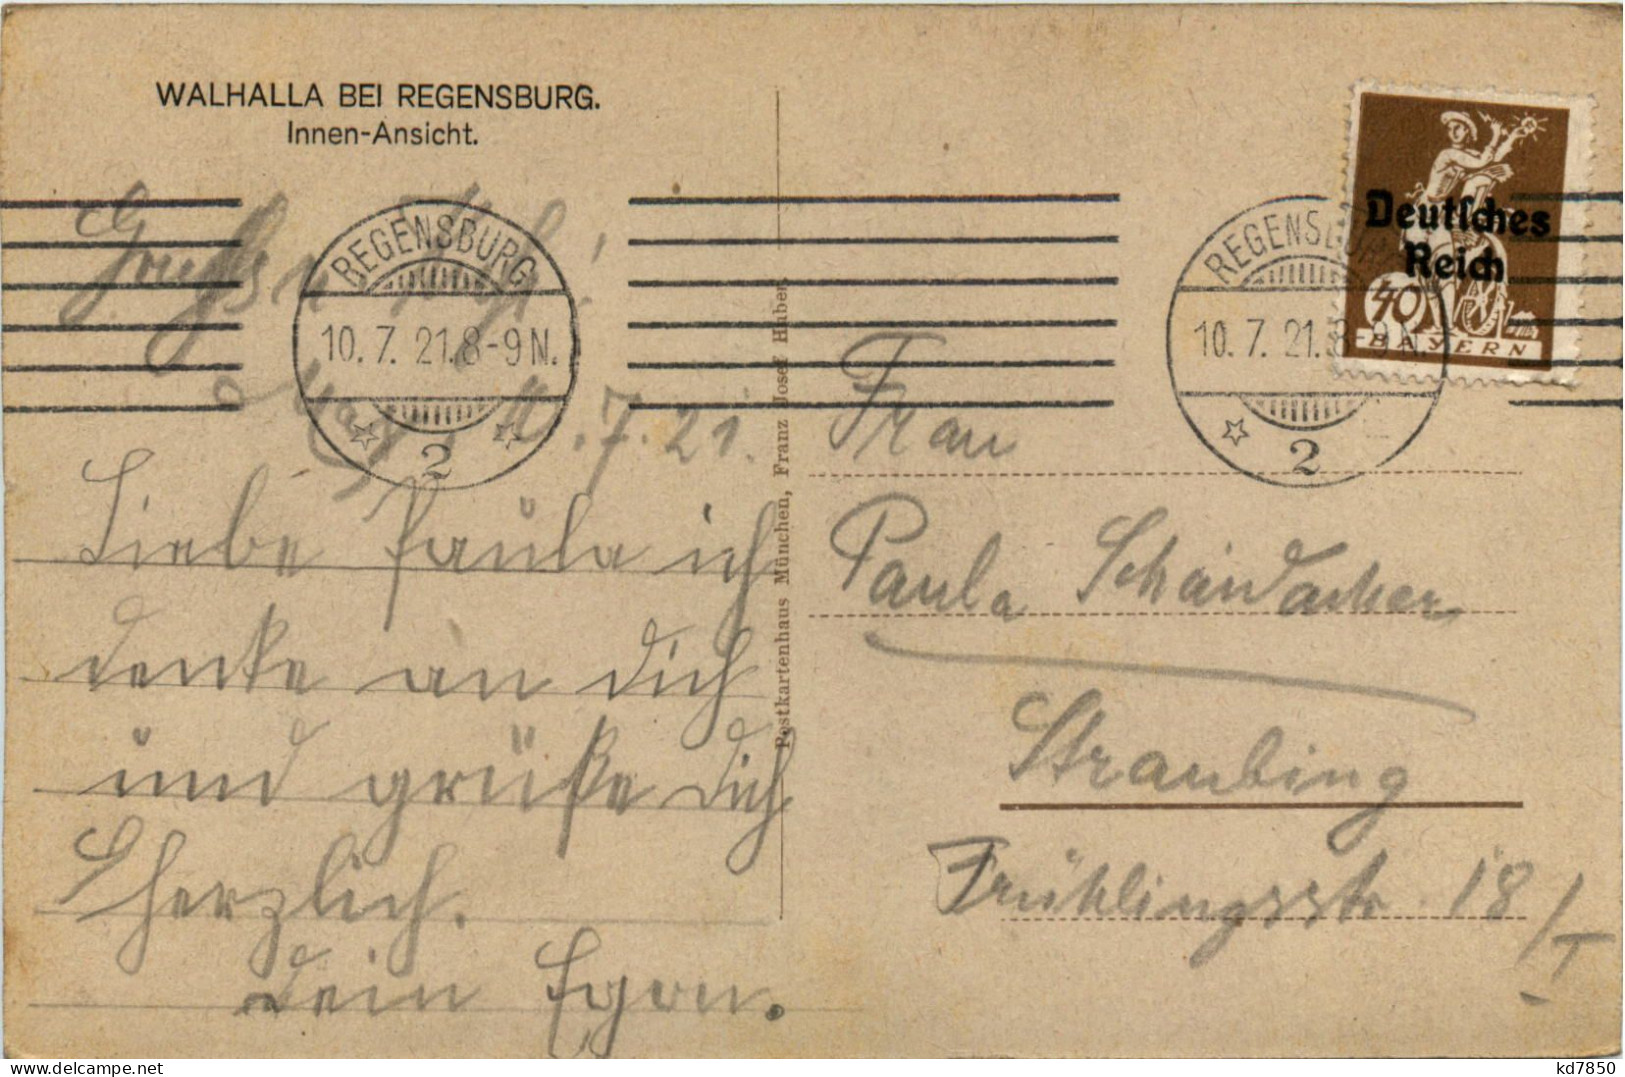 WALHALLA BEI REGENSBURG.
Innen-Ansicht.
REGENSBURG
10. 7. 21. 8-9 N.
2
REGENSBURG
10. 7. 21. 8-9 N.
2
Deutsches
Reich
40
BAYERN
7. 21.
Liebe Paula ich
denke an dich
und grüße dich
herzlich.
Dein Egon.
Postkartenhaus München, Franz Josef Huber.
Frau
Paula Schaidacker
Straubing
Frühlingsstr. 18/I
kd7850